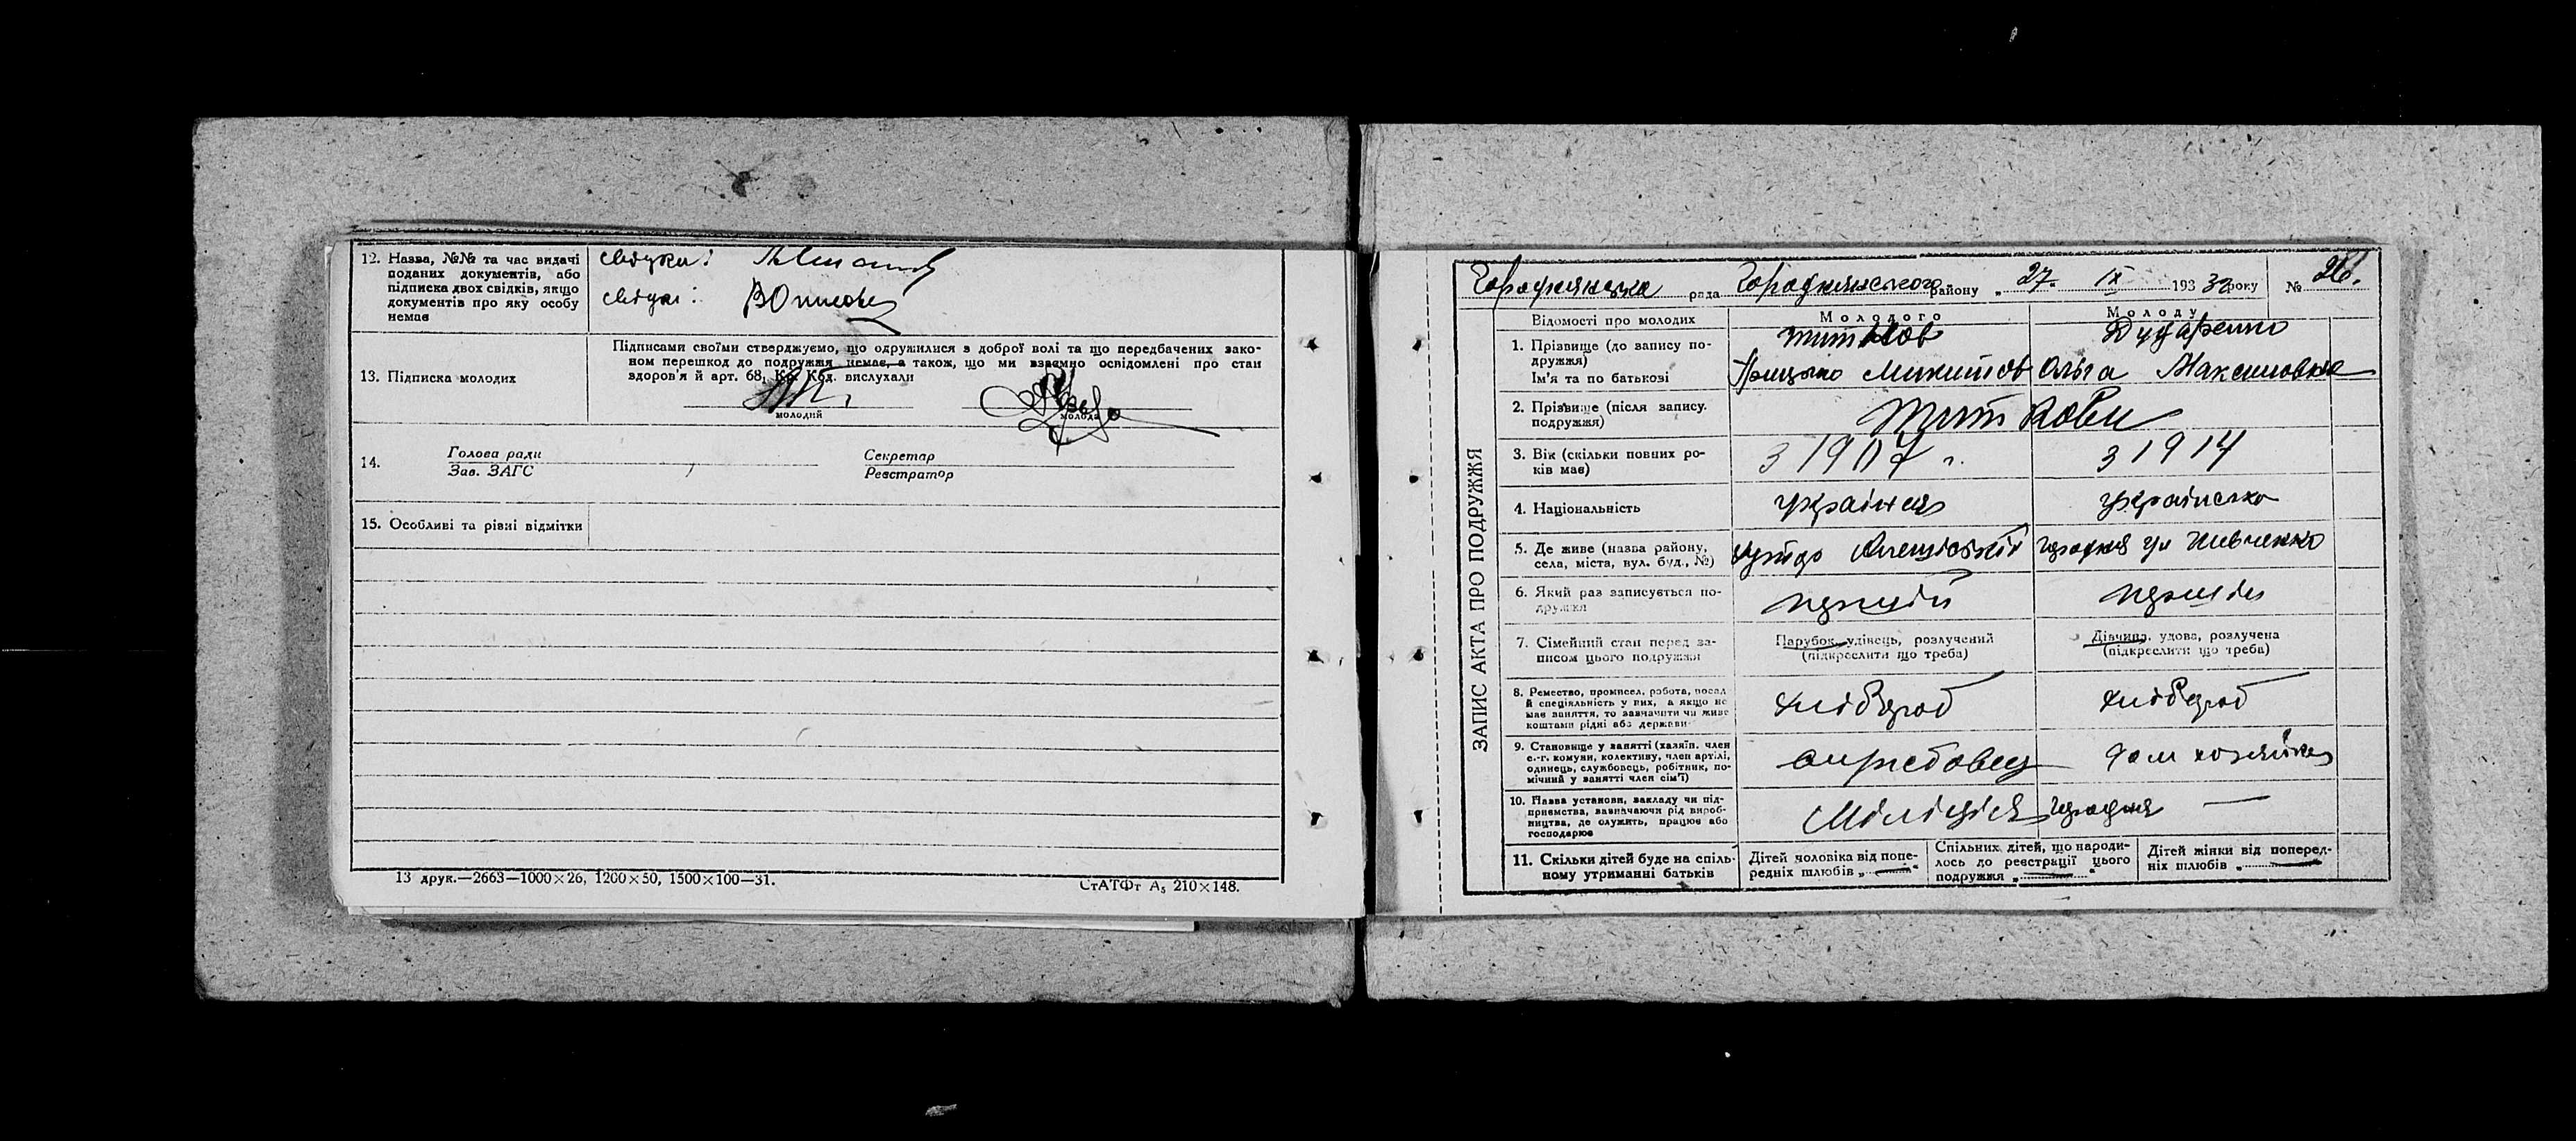 12. Назва, №№ та час видачі
поданих документів, або
підписка двох свідків, якщо
документів про яку особу
немає
свідки:
свідки:
13. Підписка молодих
Підписами своїми стверджуємо, що одружилися з доброї волі та що передбачених зако-
ном перешкод до подружжя немає, а також, що ми взаємно освідомлені про стан
здоров'я й арт. 68, Кр. Код. вислухали
молодий
молода
14.
Голова ради
Зав. ЗАГС
Секретар
Реєстратор
15. Особливі та рівні відмітки
13 друк.—2663—1000×26, 1200×50, 1500×100—31.
СтАТФт А₅ 210×148.
ЗАПИС АКТА ПРО ПОДРУЖЖЯ
Городнянська рада Городнянського району „ 27. IX 1932 року № 26.
Відомості про молодих
Молодого
Молоду
1. Прізвище (до запису по-
дружжя)
Ім'я та по батькові
Титков
Дударенко
Грицько Микитов
Ольга Максимовна
2. Прізвище (після запису.
подружжя)
Титкови
3. Вік (скільки повних ро-
ків має)
з 1907 г.
з 1914
4. Національність
українець
українка
5. Де живе (назва району,
села, міста, вул. буд., №)
Городня ул Шевченко
6. Який раз записується по-
дружжя
перший
перший
7. Сімейний стан перед за-
писом цього подружжя
Парубок, удівець, розлучений
(підкреслити що треба)
Дівчина, удова, розлучена
(підкреслити що треба)
8. Ремество, промисел, робота, посал
й спеціяльність у них, а якщо не
має заняття, то зазначити чи живе
коштами рідні або держави
хлібороб
хлібороб
9. Становище у занятті (хазяїн, член
с.-г. комуни, колективу, член артілі,
одинець, службовець, робітник, по-
мічний у занятті член сім'ї)
службовец
дом хозяйка
10. Назва установи, закладу чи під-
приємства, зазначаючи рід вироб-
ництва, де служить, працює або
господарює
Міліція Городня —
11. Скільки дітей буде на спіль-
ному утриманні батьків
Дітей чоловіка від попе-
редніх шлюбів „—“
Спільних дітей, що народи-
лось до реєстрації цього
подружжя „—“
Дітей жінки від поперед-
ніх шлюбів „—“